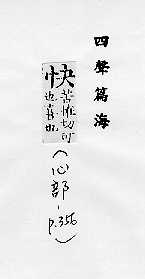 四聲篇海
快
苦切可
也喜也
(心部-p.356)